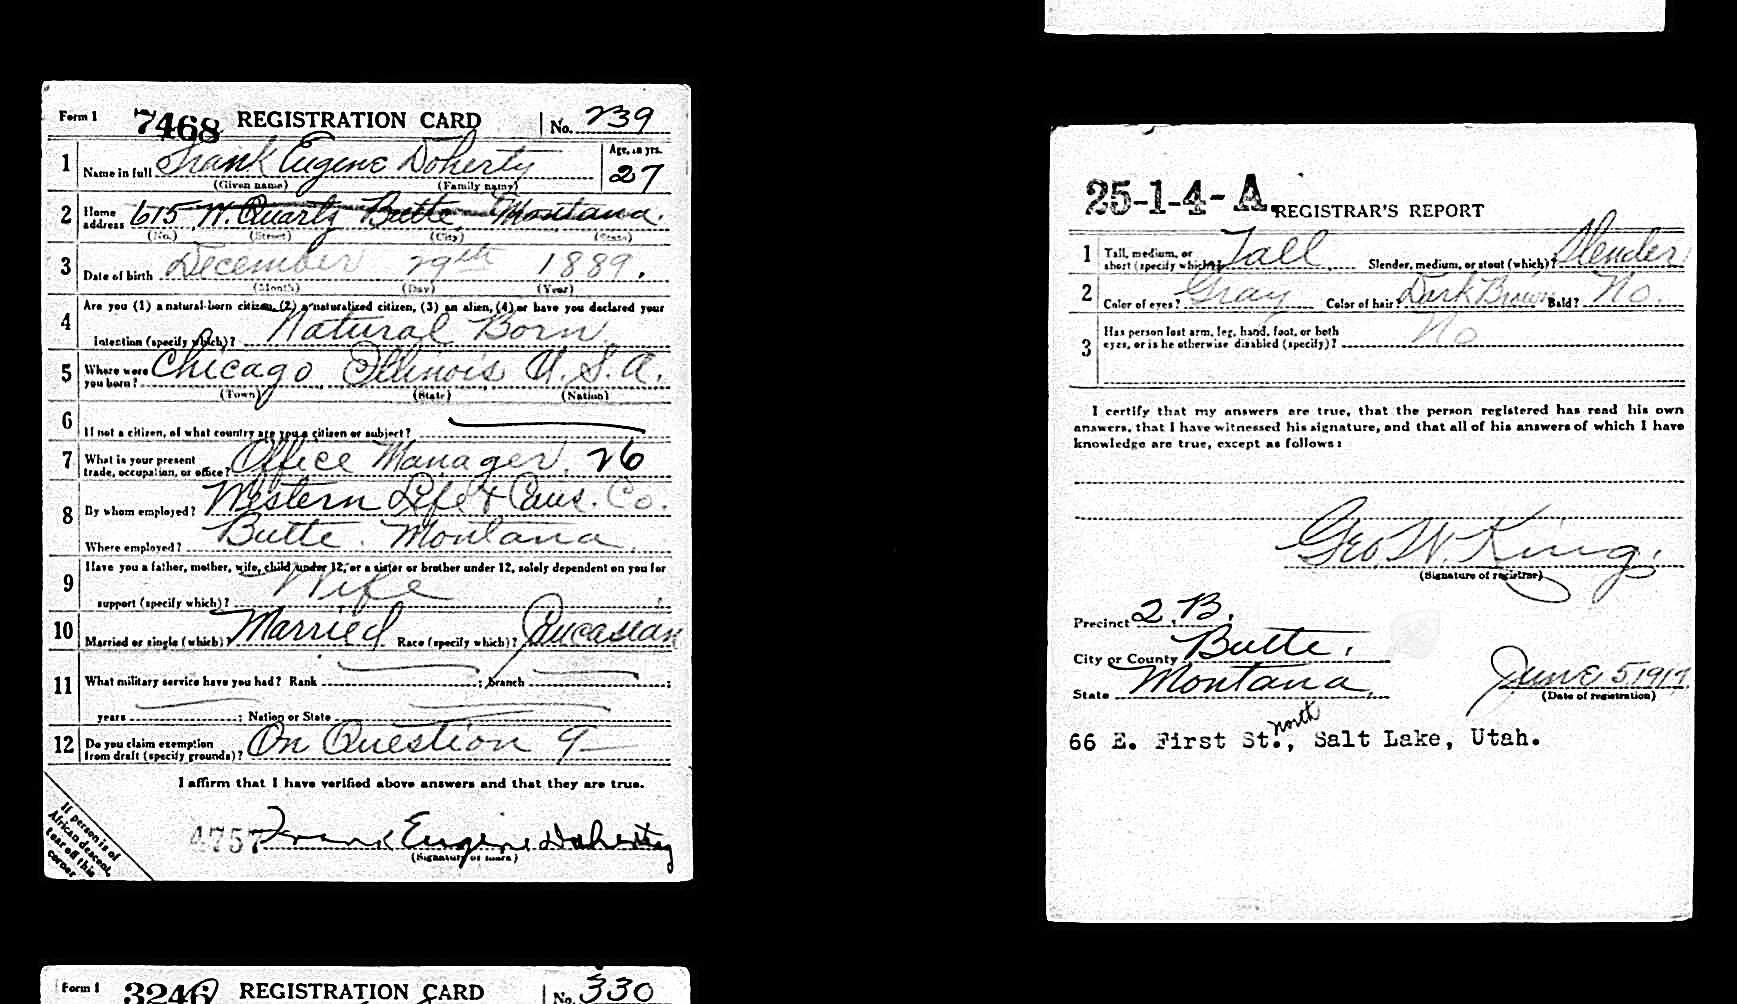 Form 1 7468 REGISTRATION CARD No. 239
1 Name in full Frank Eugene Doherty Age, in yrs. 27
(Given name) (Family name)
2 Home address 615 W. Quartz Butte Montana.
(No.) (Street) (City) (State)
3 Date of birth December 29th 1889.
(Month) (Day) (Year)
4 Are you (1) a natural-born citizen, (2) a naturalized citizen, (3) an alien, (4) or have you declared your
intention (specify which)? Natural Born
5 Where were you born? Chicago Illinois U.S.A.
(Town) (State) (Nation)
6 If not a citizen, of what country are you a citizen or subject?
7 What is your present trade, occupation, or office? Office Manager. 26
8 By whom employed? Western Life & Caus. Co.
Where employed? Butte. Montana.
9 Have you a father, mother, wife, child under 12, or a sister or brother under 12, solely dependent on you for
support (specify which)? Wife
10 Married or single (which)? Married Race (specify which)? Caucasian
11 What military service have you had? Rank ; branch ;
years ; Nation or State
12 Do you claim exemption from draft (specify grounds)? On Question 9
I affirm that I have verified above answers and that they are true.
4757 Frank Eugene Doherty
(Signature or mark)
If person is of
African descent,
tear off this
corner
Form 1 3246 REGISTRATION CARD No. 330
25-1-4-A. REGISTRAR'S REPORT
1 Tall, medium, or short (specify which)? Tall Slender, medium, or stout (which)? Slender
2 Color of eyes? Gray Color of hair? Dark Brown Bald? No.
3 Has person lost arm, leg, hand, foot, or both
eyes, or is he otherwise disabled (specify)? No
I certify that my answers are true, that the person registered has read his own
answers, that I have witnessed his signature, and that all of his answers of which I have
knowledge are true, except as follows:
Geo. W. King.
(Signature of registrar)
Precinct 2, B.
City or County Butte.
State Montana. June 5 1917
(Date of registration)
66 E. First north St., Salt Lake, Utah.